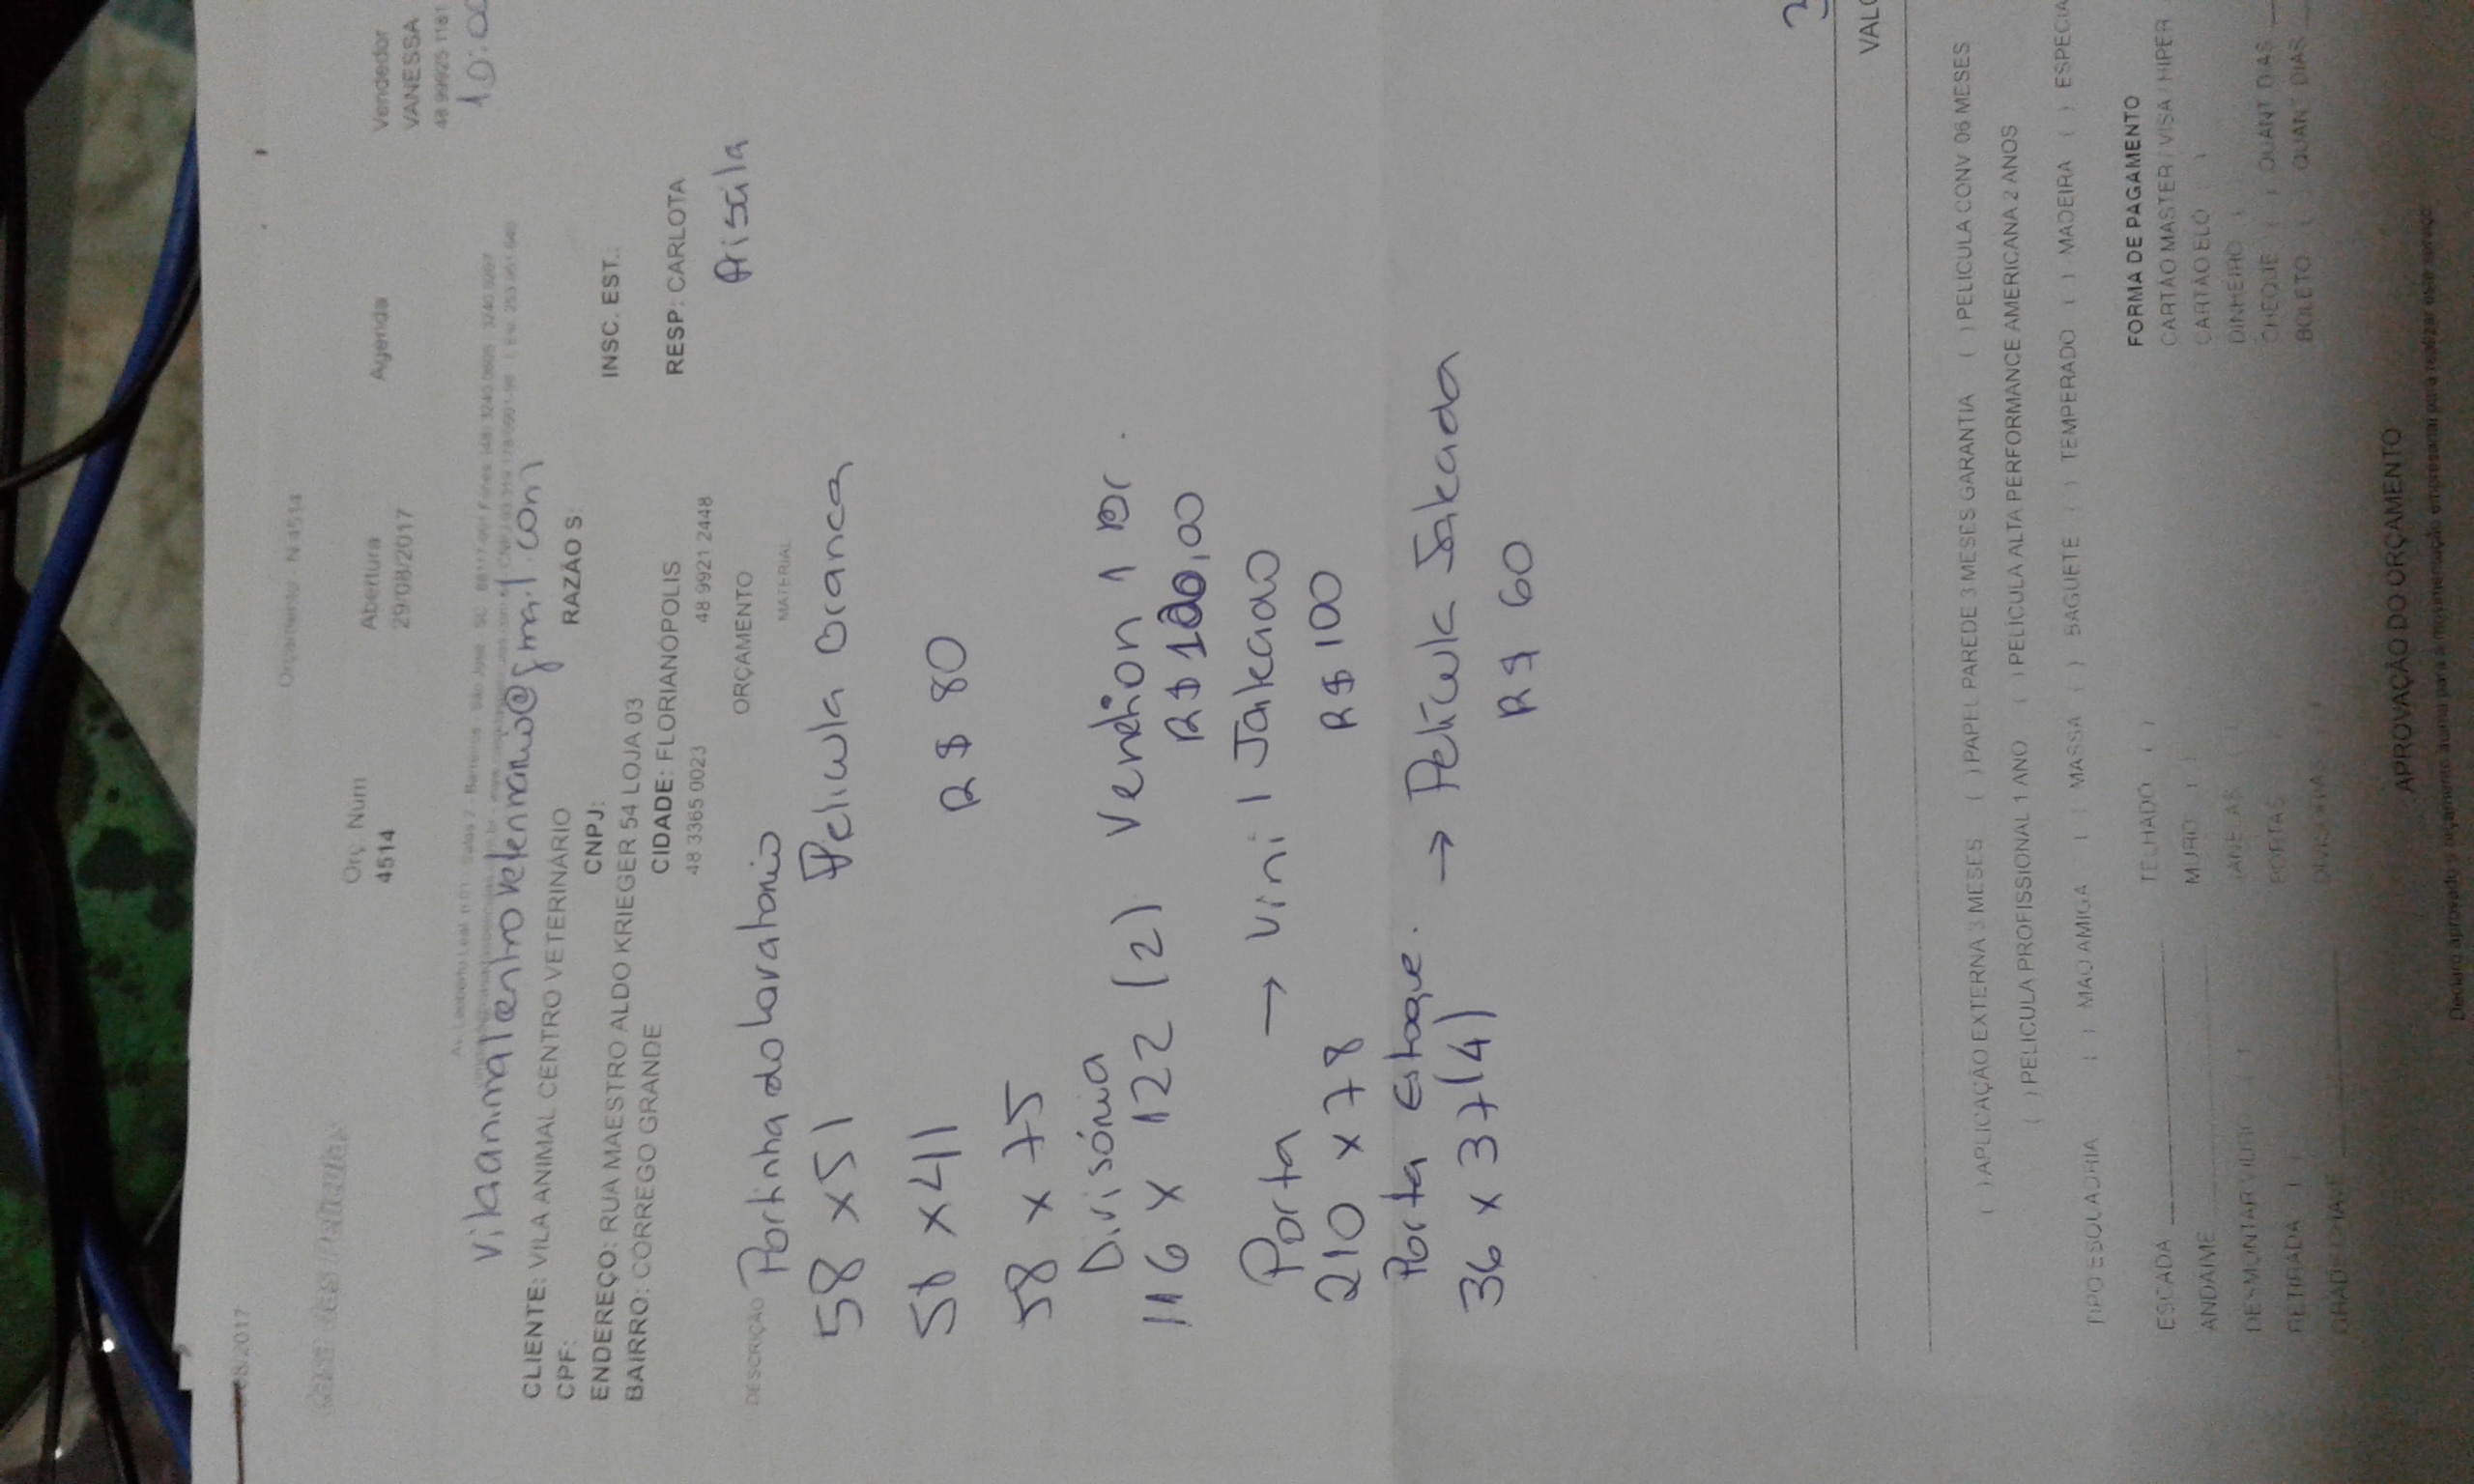 08/2017
Orçamento - N 4514
Orç. Num Abertura Agenda Vendedor
4514 29/08/2017 VANESSA
48 99925 1181
10:00
vilaanimalcentroveterinario@gmail.com
CLIENTE: VILA ANIMAL CENTRO VETERINÁRIO RAZÃO S:
CPF: CNPJ: INSC. EST.:
ENDEREÇO: RUA MAESTRO ALDO KRIEGER 54 LOJA 03
BAIRRO: CORREGO GRANDE CIDADE: FLORIANÓPOLIS RESP: CARLOTA
48 3365 0023 48 9921 2448
Priscila
ORÇAMENTO
DESCRIÇÃO MATERIAL
Portinha do lavatorio
58 x 51 Pelicula branca
58 x 411
R$ 80
58 x 75
Divisória
116 x 122 (2) Vention 1 Dr.
R$ 100,00
Porta → Vinil Jakeado
210 x 78 R$ 100
Porta Estoque. → Película Jakeada
36 x 37 (4) R$ 60
( ) APLICAÇÃO EXTERNA 3 MESES ( ) PAPEL PAREDE 3 MESES GARANTIA ( ) PELICULA CONV 06 MESES
( ) PELICULA PROFISSIONAL 1 ANO ( ) PELÍCULA ALTA PERFORMANCE AMERICANA 2 ANOS
TIPO ESQUADRIA ( ) MÃO AMIGA ( ) MASSA ( ) BAGUETE ( ) TEMPERADO ( ) MADEIRA ( )
FORMA DE PAGAMENTO
ESCADA TELHADO ( ) CARTÃO MASTER / VISA / HIPER
ANDAIME MURO ( ) CARTÃO ELO ( )
DESMONTAR VIDRO ( ) JANELAS ( ) DINHEIRO ( )
RETIRADA ( ) PORTAS CHEQUE ( ) QUANT DIAS
GRADE CHAVE DIVISÓRIAS ( ) BOLETO ( ) QUANT DIAS
APROVAÇÃO DO ORÇAMENTO